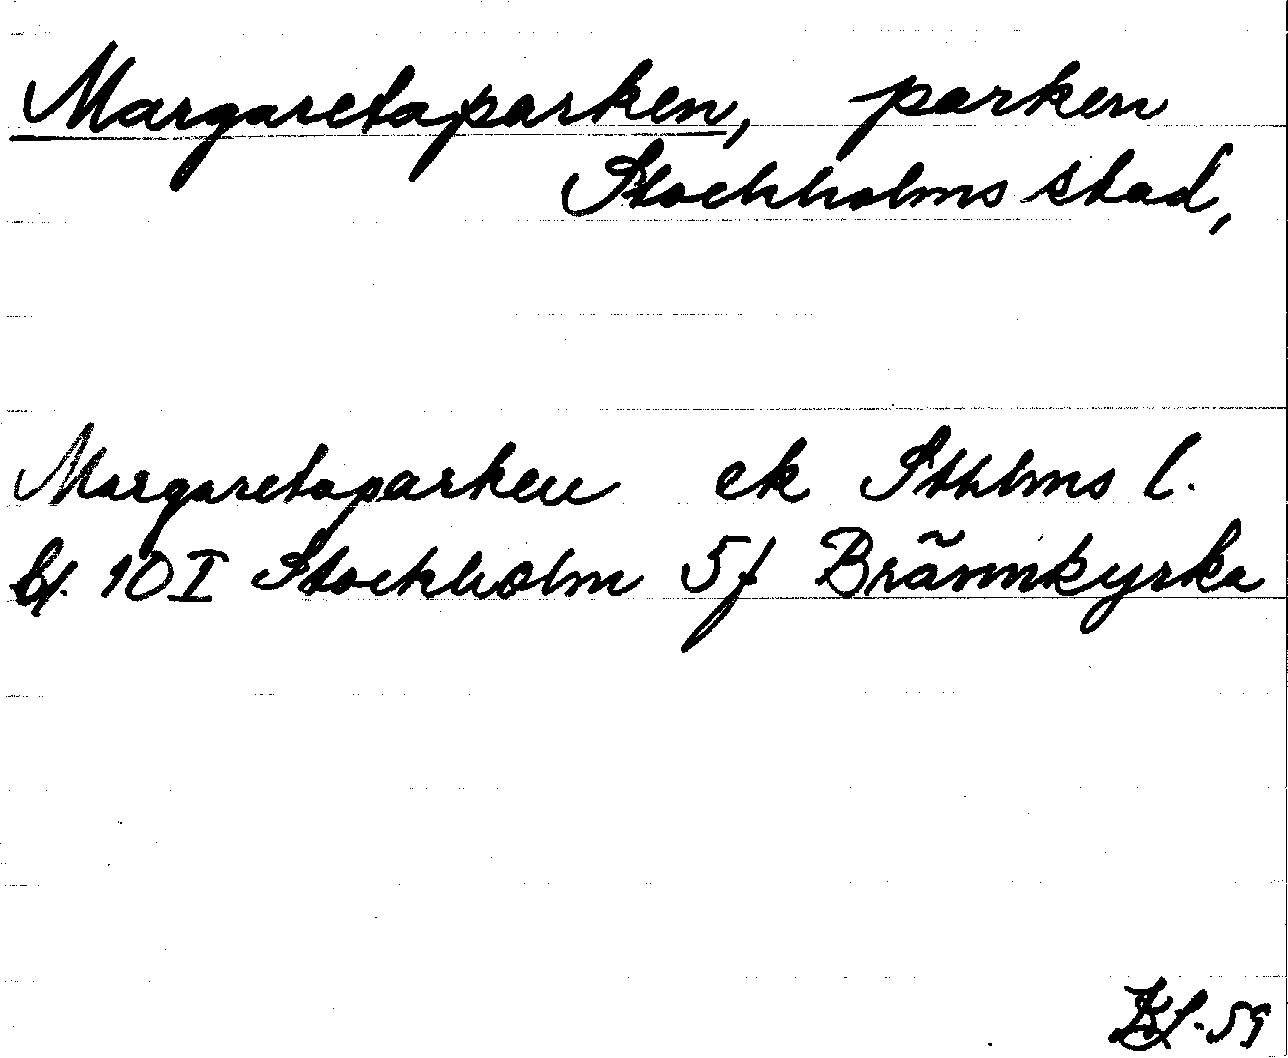 Margaretaparken, parken
Stockholms stad,
Margaretaparken ek Sthlms l.
bl. 10 I Stockholm 5f Brännkyrka